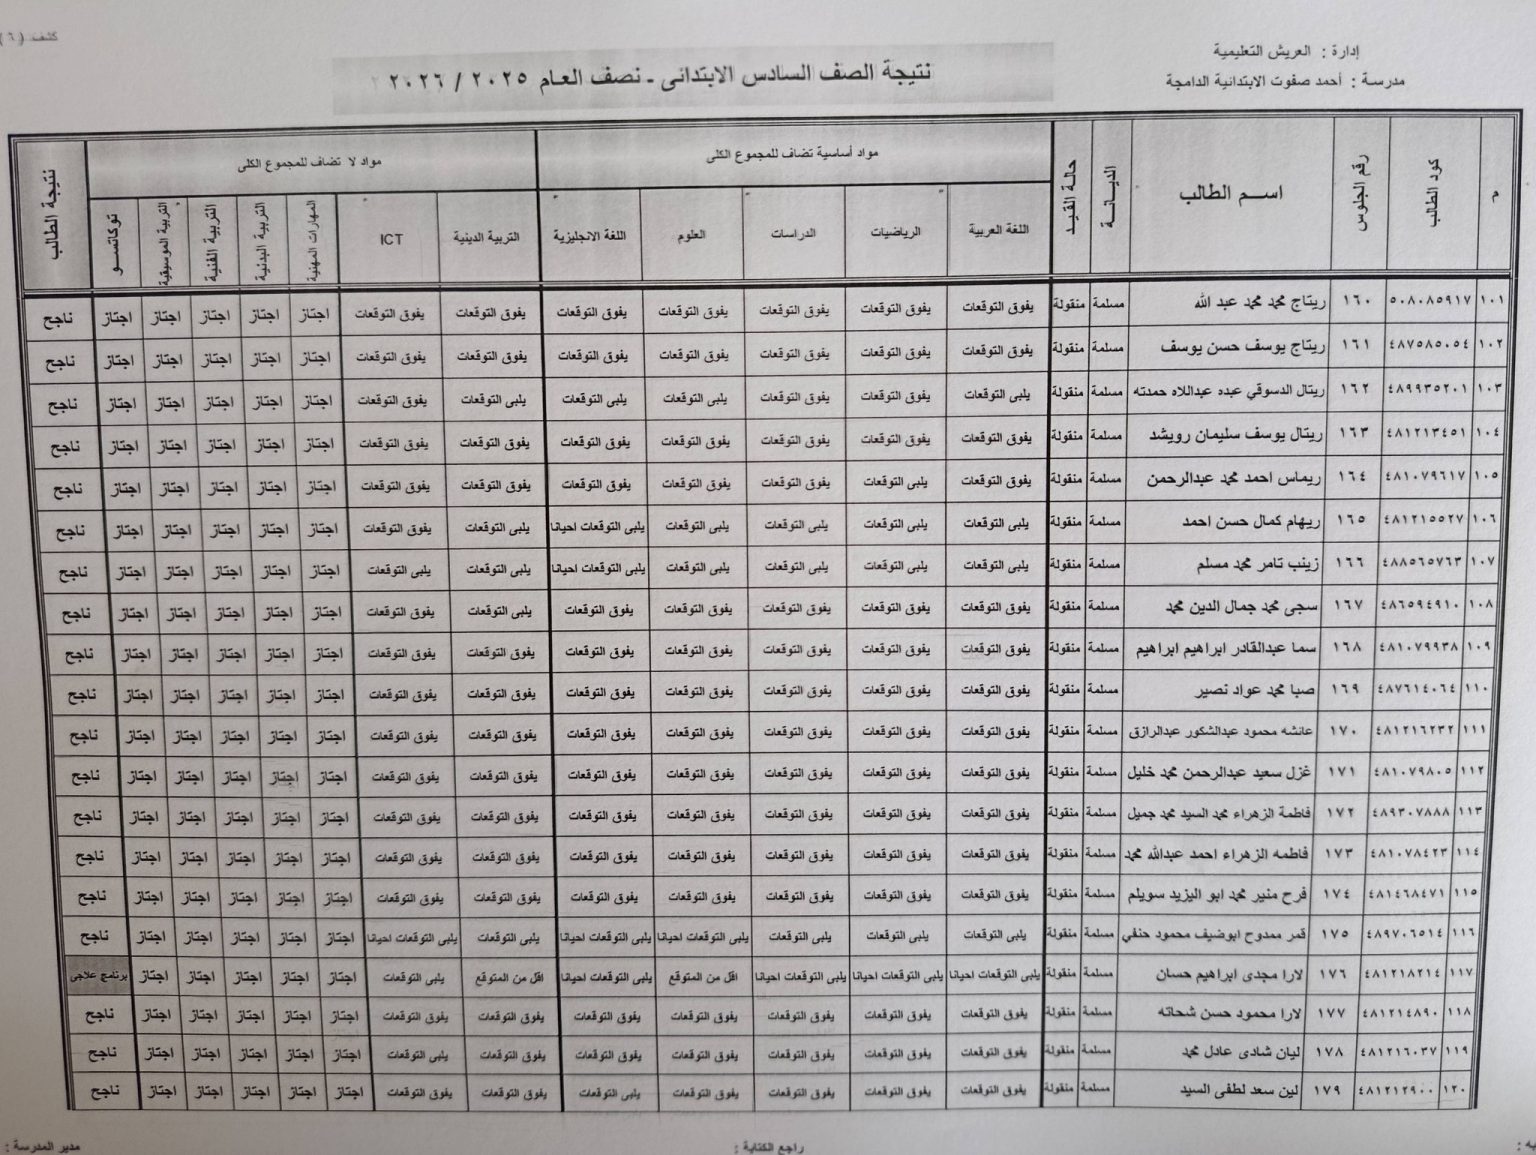 كشف (٦)
إدارة : العريش التعليمية
مدرسة : أحمد صفوت الابتدائية الدامجة
نتيجة الصف السادس الابتدائى - نصف العام ٢٠٢٥ / ٢٠٢٦
م | كود الطالب | رقم الجلوس | اسم الطالب | الديانة | حالة القيد | مواد أساسية تضاف للمجموع الكلى | مواد لا تضاف للمجموع الكلى | نتيجة الطالب
اللغة العربية | الرياضيات | الدراسات | العلوم | اللغة الانجليزية | التربية الدينية | ICT | المهارات المهنية | التربية البدنية | التربية الفنية | التربية الموسيقية | توكاتسو
١٠١ | ٥٠٨٠٨٥٩١٧ | ١٦٠ | ريتاج محمد محمد عبد الله | مسلمة | منقولة | يفوق التوقعات | يفوق التوقعات | يفوق التوقعات | يفوق التوقعات | يفوق التوقعات | يفوق التوقعات | يفوق التوقعات | اجتاز | اجتاز | اجتاز | اجتاز | اجتاز | ناجح
١٠٢ | ٤٨٧٥٨٥٠٥٤ | ١٦١ | ريتاج يوسف حسن يوسف | مسلمة | منقولة | يفوق التوقعات | يفوق التوقعات | يفوق التوقعات | يفوق التوقعات | يفوق التوقعات | يفوق التوقعات | يفوق التوقعات | اجتاز | اجتاز | اجتاز | اجتاز | اجتاز | ناجح
١٠٣ | ٤٨٩٩٣٥٢٠١ | ١٦٢ | ريتال الدسوقي عبده عبداللاه حمدته | مسلمة | منقولة | يلبى التوقعات | يفوق التوقعات | يفوق التوقعات | يلبى التوقعات | يلبى التوقعات | يلبى التوقعات | يفوق التوقعات | اجتاز | اجتاز | اجتاز | اجتاز | اجتاز | ناجح
١٠٤ | ٤٨١٢١٣٤٥١ | ١٦٣ | ريتال يوسف سليمان رويشد | مسلمة | منقولة | يفوق التوقعات | يفوق التوقعات | يفوق التوقعات | يفوق التوقعات | يفوق التوقعات | يفوق التوقعات | يفوق التوقعات | اجتاز | اجتاز | اجتاز | اجتاز | اجتاز | ناجح
١٠٥ | ٤٨١٠٧٩٦١٧ | ١٦٤ | ريماس احمد محمد عبدالرحمن | مسلمة | منقولة | يفوق التوقعات | يلبى التوقعات | يفوق التوقعات | يفوق التوقعات | يفوق التوقعات | يفوق التوقعات | يفوق التوقعات | اجتاز | اجتاز | اجتاز | اجتاز | اجتاز | ناجح
١٠٦ | ٤٨١٢١٥٥٢٧ | ١٦٥ | ريهام كمال حسن احمد | مسلمة | منقولة | يلبى التوقعات | يلبى التوقعات | يلبى التوقعات | يلبى التوقعات | يلبى التوقعات احيانا | يلبى التوقعات | يفوق التوقعات | اجتاز | اجتاز | اجتاز | اجتاز | اجتاز | ناجح
١٠٧ | ٤٨٨٥٦٥٧٦٣ | ١٦٦ | زينب تامر محمد مسلم | مسلمة | منقولة | يلبى التوقعات | يلبى التوقعات | يلبى التوقعات | يلبى التوقعات | يلبى التوقعات احيانا | يلبى التوقعات | يلبى التوقعات | اجتاز | اجتاز | اجتاز | اجتاز | اجتاز | ناجح
١٠٨ | ٤٨٦٥٩٤٩١٠ | ١٦٧ | سجى محمد جمال الدين محمد | مسلمة | منقولة | يفوق التوقعات | يفوق التوقعات | يفوق التوقعات | يفوق التوقعات | يفوق التوقعات | يلبى التوقعات | يفوق التوقعات | اجتاز | اجتاز | اجتاز | اجتاز | اجتاز | ناجح
١٠٩ | ٤٨١٠٧٩٩٣٨ | ١٦٨ | سما عبدالقادر ابراهيم ابراهيم | مسلمة | منقولة | يفوق التوقعات | يفوق التوقعات | يفوق التوقعات | يفوق التوقعات | يفوق التوقعات | يفوق التوقعات | يفوق التوقعات | اجتاز | اجتاز | اجتاز | اجتاز | اجتاز | ناجح
١١٠ | ٤٨٧٦١٤٠٦٤ | ١٦٩ | صبا محمد عواد نصير | مسلمة | منقولة | يفوق التوقعات | يفوق التوقعات | يفوق التوقعات | يفوق التوقعات | يفوق التوقعات | يفوق التوقعات | يفوق التوقعات | اجتاز | اجتاز | اجتاز | اجتاز | اجتاز | ناجح
١١١ | ٤٨١٢١٦٢٣٢ | ١٧٠ | عائشه محمود عبدالشكور عبدالرازق | مسلمة | منقولة | يفوق التوقعات | يفوق التوقعات | يفوق التوقعات | يفوق التوقعات | يفوق التوقعات | يفوق التوقعات | يفوق التوقعات | اجتاز | اجتاز | اجتاز | اجتاز | اجتاز | ناجح
١١٢ | ٤٨١٠٧٩٨٠٥ | ١٧١ | غزل سعيد عبدالرحمن محمد خليل | مسلمة | منقولة | يفوق التوقعات | يفوق التوقعات | يفوق التوقعات | يفوق التوقعات | يفوق التوقعات | يفوق التوقعات | يفوق التوقعات | اجتاز | اجتاز | اجتاز | اجتاز | اجتاز | ناجح
١١٣ | ٤٨٩٣٠٧٨٨٨ | ١٧٢ | فاطمة الزهراء محمد السيد محمد جميل | مسلمة | منقولة | يفوق التوقعات | يفوق التوقعات | يفوق التوقعات | يفوق التوقعات | يفوق التوقعات | يفوق التوقعات | يفوق التوقعات | اجتاز | اجتاز | اجتاز | اجتاز | اجتاز | ناجح
١١٤ | ٤٨١٠٧٨٤٢٣ | ١٧٣ | فاطمه الزهراء احمد عبدالله محمد | مسلمة | منقولة | يفوق التوقعات | يفوق التوقعات | يفوق التوقعات | يفوق التوقعات | يفوق التوقعات | يفوق التوقعات | يفوق التوقعات | اجتاز | اجتاز | اجتاز | اجتاز | اجتاز | ناجح
١١٥ | ٤٨١٤٦٨٤٧١ | ١٧٤ | فرح منير محمد ابو اليزيد سويلم | مسلمة | منقولة | يفوق التوقعات | يفوق التوقعات | يفوق التوقعات | يفوق التوقعات | يفوق التوقعات | يفوق التوقعات | يفوق التوقعات | اجتاز | اجتاز | اجتاز | اجتاز | اجتاز | ناجح
١١٦ | ٤٨٩٧٠٦٥١٤ | ١٧٥ | قمر ممدوح ابوضيف محمود حنفي | مسلمة | منقولة | يلبى التوقعات | يلبى التوقعات | يلبى التوقعات | يلبى التوقعات احيانا | يلبى التوقعات احيانا | يلبى التوقعات | يلبى التوقعات احيانا | اجتاز | اجتاز | اجتاز | اجتاز | اجتاز | ناجح
١١٧ | ٤٨١٢١٨٢١٤ | ١٧٦ | لارا مجدى ابراهيم حسان | مسلمة | منقولة | يلبى التوقعات احيانا | يلبى التوقعات احيانا | يلبى التوقعات احيانا | اقل من المتوقع | يلبى التوقعات احيانا | اقل من المتوقع | يلبى التوقعات | اجتاز | اجتاز | اجتاز | اجتاز | اجتاز | برنامج علاجى
١١٨ | ٤٨١٢١٤٨٩٠ | ١٧٧ | لارا محمود حسن شحاته | مسلمة | منقولة | يفوق التوقعات | يفوق التوقعات | يفوق التوقعات | يفوق التوقعات | يفوق التوقعات | يفوق التوقعات | يفوق التوقعات | اجتاز | اجتاز | اجتاز | اجتاز | اجتاز | ناجح
١١٩ | ٤٨١٢١٦٠٣٧ | ١٧٨ | ليان شادى عادل محمد | مسلمة | منقولة | يفوق التوقعات | يفوق التوقعات | يفوق التوقعات | يفوق التوقعات | يفوق التوقعات | يفوق التوقعات | يلبى التوقعات | اجتاز | اجتاز | اجتاز | اجتاز | اجتاز | ناجح
١٢٠ | ٤٨١٢١٢٩٠٠ | ١٧٩ | لين سعد لطفى السيد | مسلمة | منقولة | يفوق التوقعات | يفوق التوقعات | يفوق التوقعات | يفوق التوقعات | يلبى التوقعات | يفوق التوقعات | يفوق التوقعات | اجتاز | اجتاز | اجتاز | اجتاز | اجتاز | ناجح
راجع الكتابة : مدير المدرسة :